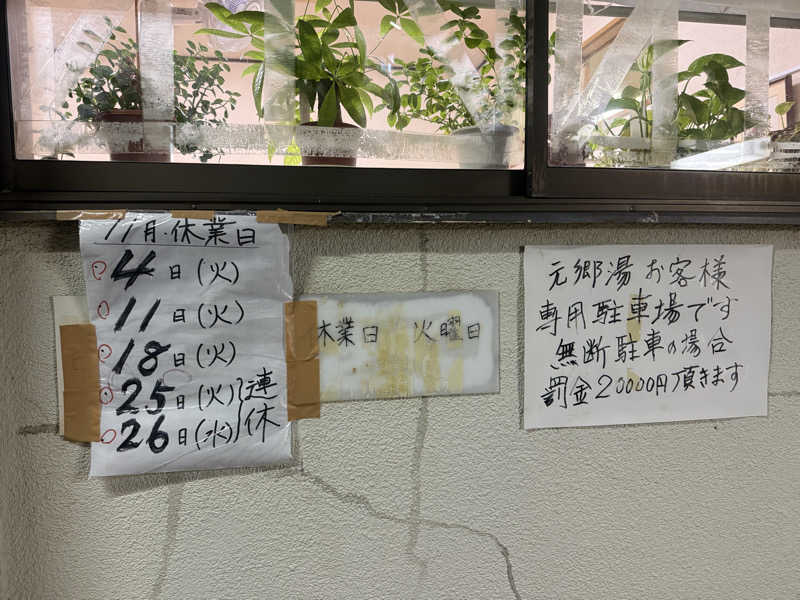 11月・休業日
4日(火)
11日(火)
18日(火)
25日(火)
26日(水)
連休
休業日 火曜日
元郷湯お客様
専用駐車場です
無断駐車の場合
罰金20000円頂きます